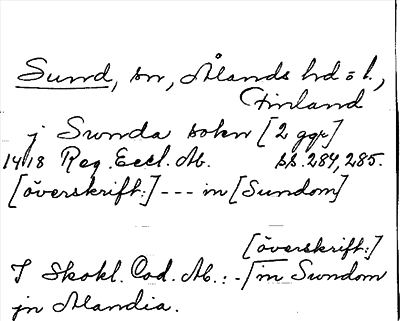 Sund, sn, Ålands hd o l.,
Finland
j Sunda sokn [2 ggr]
1418 Reg. Eccl. Ab. ss. 284, 285.
[överskrift:] --- in [Sundom]
[överskrift:]
J Skokl. Cod. Ab.: - in Sundom
jn Alandia.